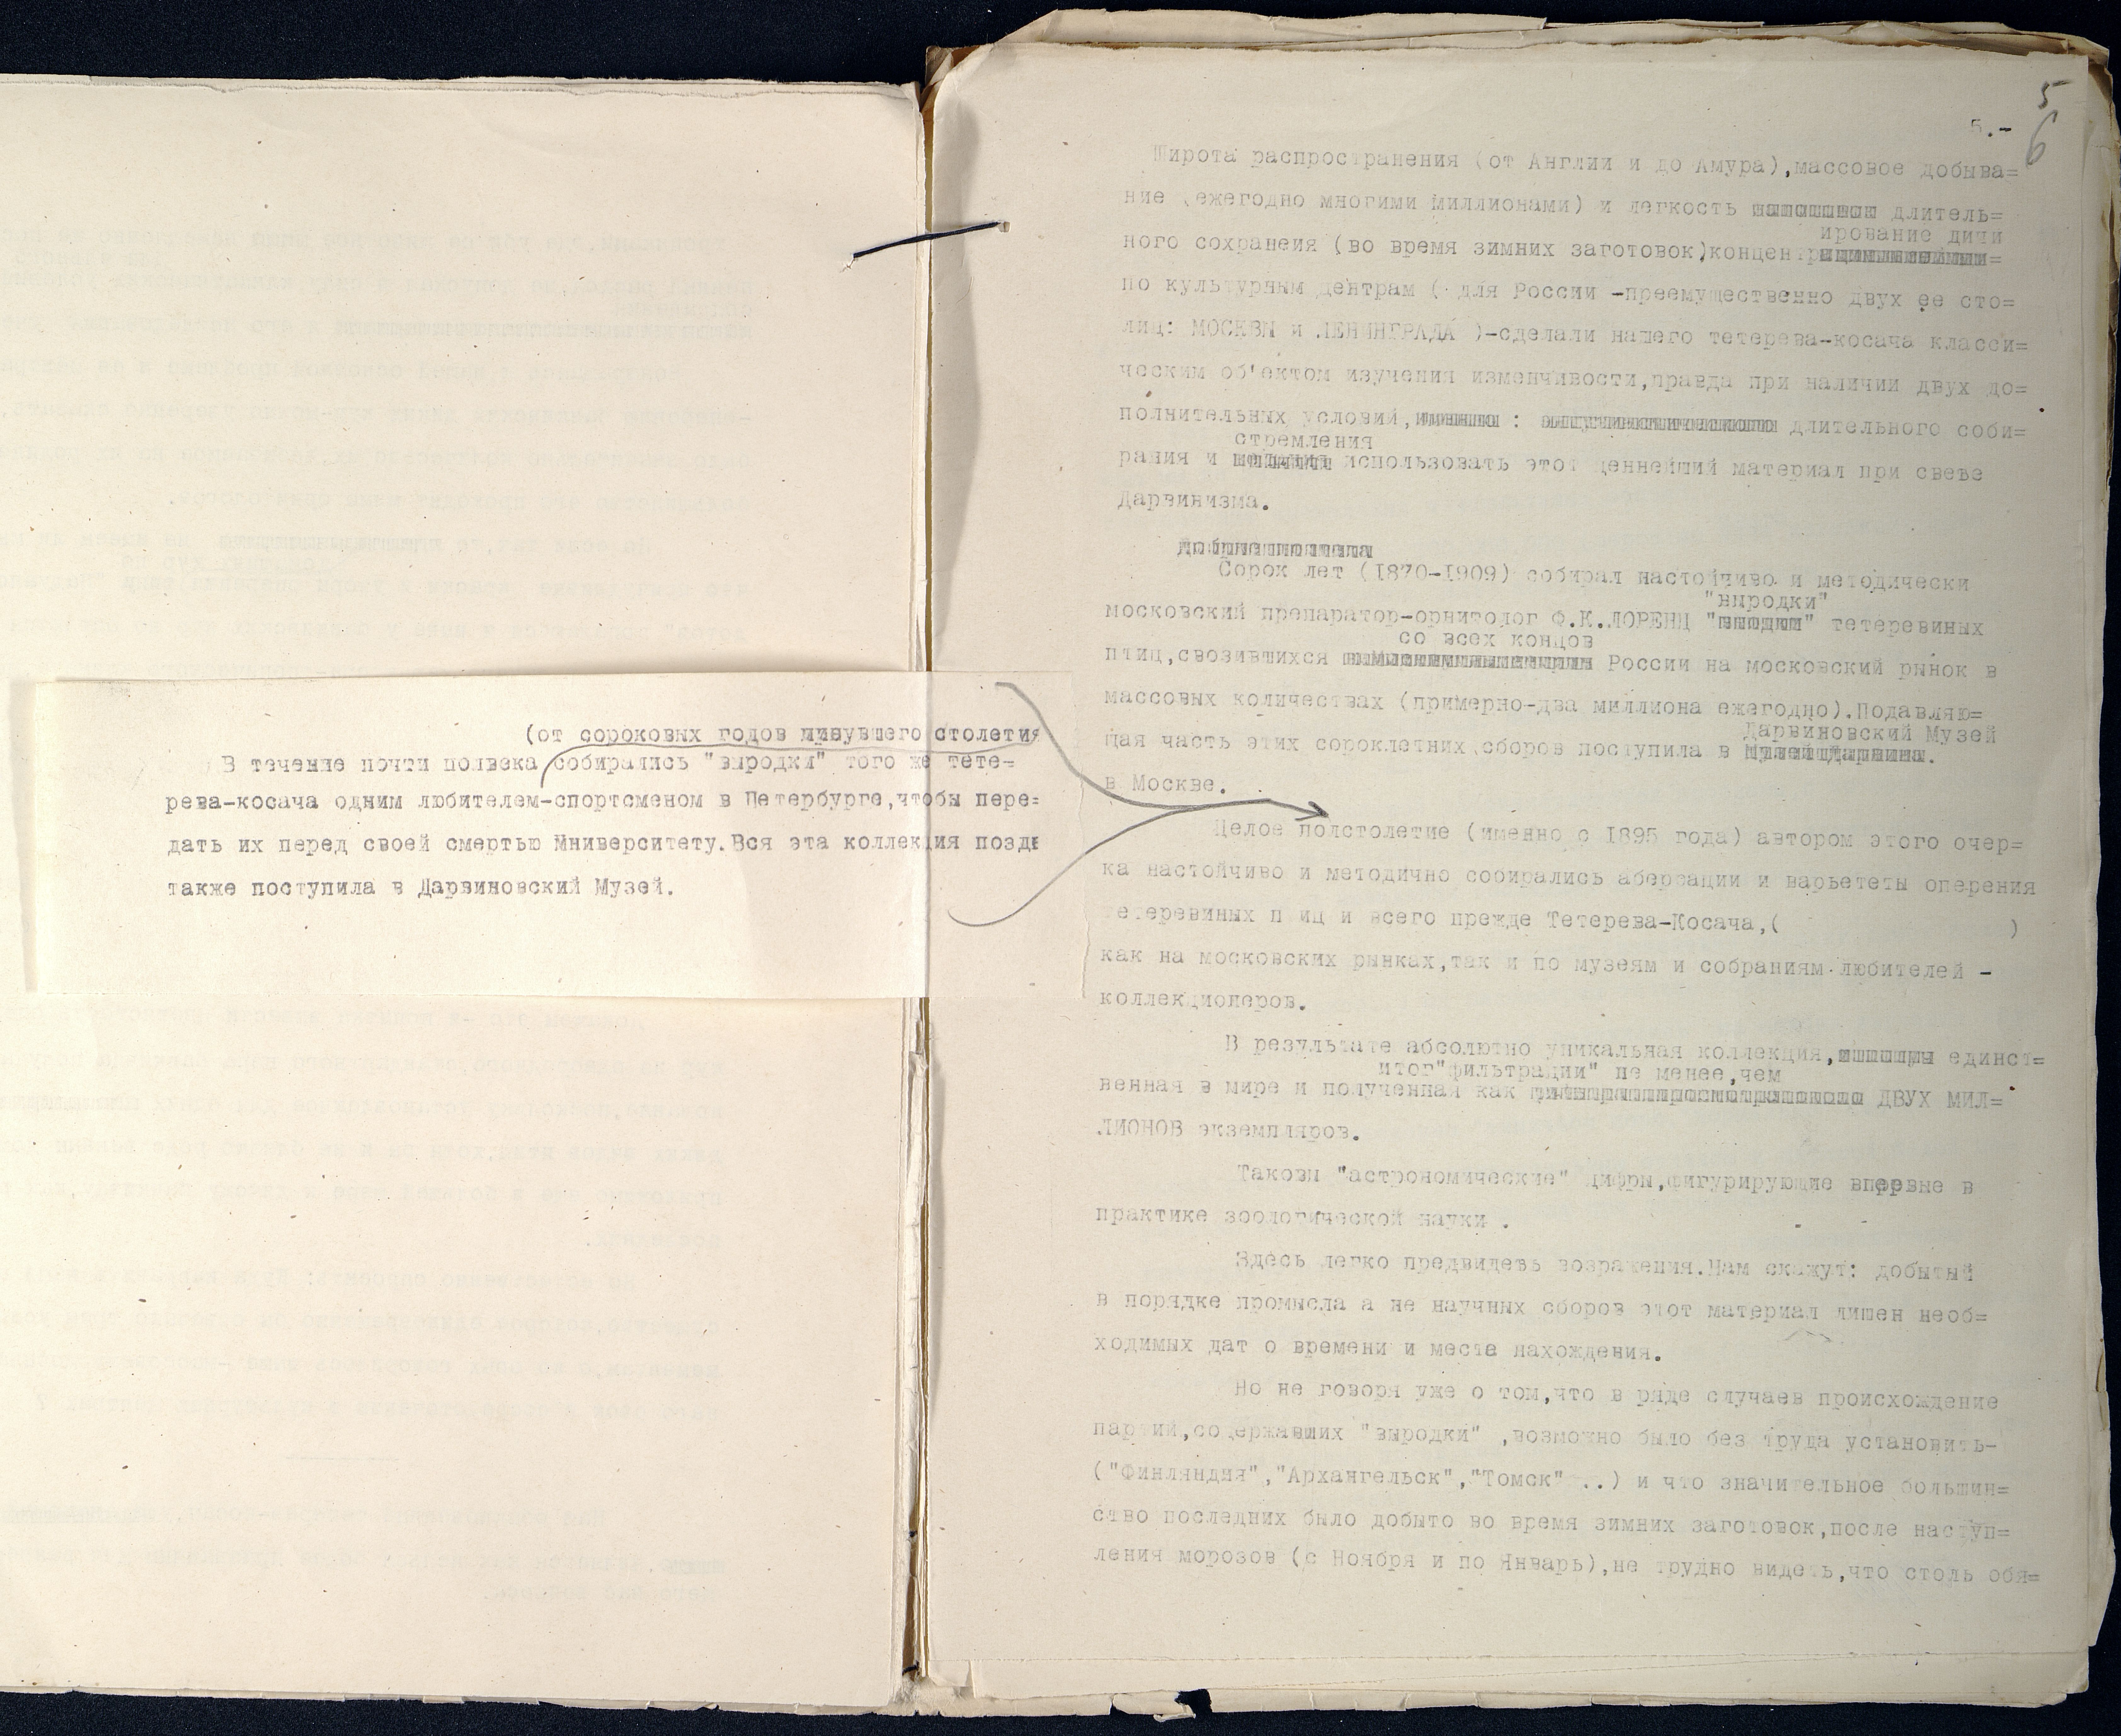 (от сороковых годов минувшего столетия
В течение почти полвека собирались "выродки" того же тете=
рева-косача одним любителем-спортсменом в Петербурге,чтобы пере=
дать их перед своей смертью Университету.Вся эта коллекция поздн
также поступила в Дарвиновский Музей.
5
6
5.-
Широта распространения (от Англии и до Амура),массовое добыва=
ние (ежегодно многими миллионами) и легкость длитель=
ирование дичи
ного сохранеия (во время зимних заготовок)концентр
по культурным центрам ( для России -преемущественно двух ее сто=
лиц: МОСКВЫ и ЛЕНИНГРАДА )-сделали нашего тетерева-косача класси=
ческим об'ектом изучения изменчивости,правда при наличии двух до=
полнительных условий, : длительного соби=
стремления
рания и использовать этот ценнейший материал при свете
Дарвинизма.
Сорок лет (1870-1909) собирал настойчиво и методически
"выродки"
московский препаратор-орнитолог Ф.К.ЛОРЕНЦ тетеревиных
со всех концов
птиц,свозившихся России на московский рынок в
массовых количествах (примерно-два миллиона ежегодно).Подавляю=
Дарвиновский Музей
щая часть этих сороклетних сборов поступила в
в Москве.
Целое полстолетие (именно с 1895 года) автором этого очер=
ка настойчиво и методично собирались аберрации и варьететы оперения
тетеревиных птиц и всего прежде Тетерева-Косача,( )
как на московских рынках,так и по музеям и собраниям любителей -
коллекционеров.
В результате абсолютно уникальная коллекция, единст=
итог"фильтрации" не менее,чем
венная в мире и полученная как ДВУХ МИЛ=
ЛИОНОВ экземпляров.
Таковы "астрономические" цифры,фигурирующие впервые в
практике зоологической науки .
Здесь легко предвидеть возражения.Нам скажут: добытый
в порядке промысла а не научных сборов этот материал лишен необ=
ходимых дат о времени и места нахождения.
Но не говоря уже о том,что в ряде случаев происхождение
партий,содержавших "выродки" ,возможно было без труда установить-
("Финляндия","Архангельск","Томск" ..) и что значительное большин=
ство последних было добыто во время зимних заготовок,после наступ=
ления морозов (с Ноября и по Январь),не трудно видеть,что столь обя=